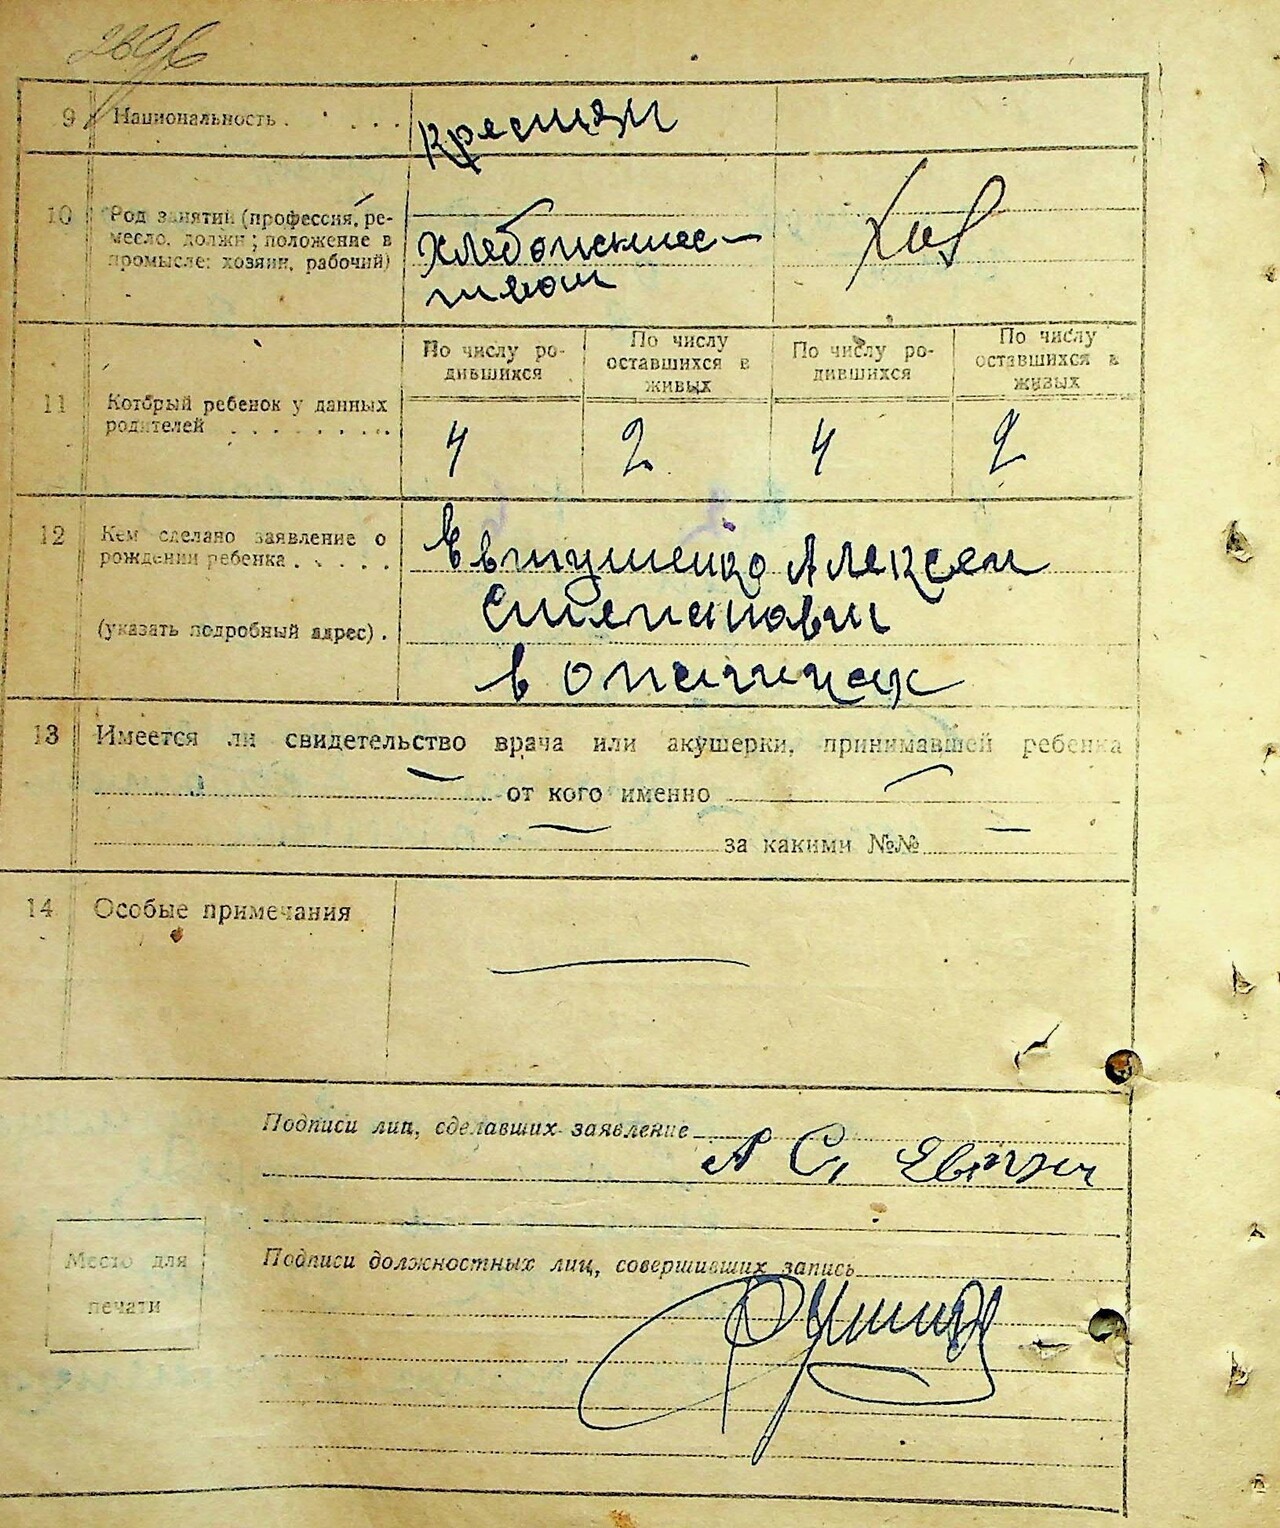 9 Национальность . . . . .
10 Род занятий (профессия, ре-
месло, должн; положение в
промысле: хозяин, рабочий)
По числу ро-
дившихся
По числу
оставшихся в
живых
По числу ро-
дившихся
По числу
оставшихся в
живых
11 Который ребенок у данных
родителей . . . . . . . .
4 2 4 2
12 Кем сделано заявление о
рождении ребенка . . . . .
Евтушенко Алексей
(указать подробный адрес) .
13 Имеется ли свидетельство врача или акушерки, принимавшей ребенка
от кого именно
за какими №№
14 Особые примечания
Подписи лиц, сделавших заявление
А С,
Подписи должностных лиц, совершивших запись
Место для
печати